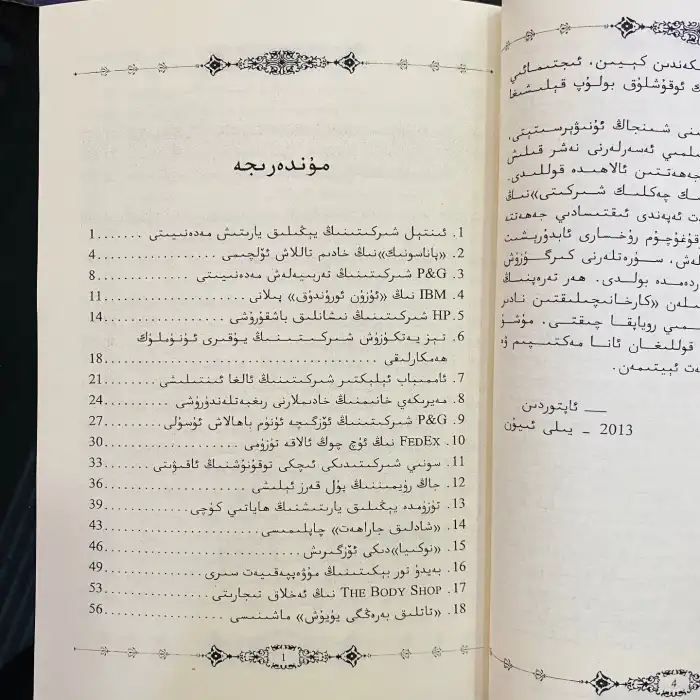 مۇندەرىجە
1. ئىنتېل شىركىتىنىڭ يېڭىلىق يارىتىش مەدەنىيىتى........1
2. «پاناسونىك»نىڭ خادىم تاللاش ئۆلچىمى................4
3. P&G شىركىتىنىڭ تەربىيەلەش مەدەنىيىتى..............8
4. IBM نىڭ «ئۇزۇن ئورۇندۇق» پىلانى....................11
5. HP شىركىتىنىڭ نىشانلىق باشقۇرۇشى..................14
6. تېز يەتكۈزۈش شىركىتىنىڭ يۇقىرى ئۈنۈملۈك
ھەمكارلىقى............................................18
7. ئاممىباب ئېلېكتىر شىركىتىنىڭ ئالغا ئىنتىلىشى......21
8. مەيرىكەي خانىمنىڭ خادىملارنى رىغبەتلەندۈرۈشى......24
9. P&G شىركىتىنىڭ ئۆزگىچە ئۈنۈم باھالاش ئۇسۇلى.......27
10. FEDEX نىڭ ئۈچ چوڭ ئالاقە تۈزۈمى...................30
11. سونىي شىركىتىدىكى ئىچكى توقۇنۇشنىڭ ئاقىۋىتى.......33
12. جاڭ رۇيمىننىڭ پۇل قەرز ئېلىشى....................36
13. تۈزۈمدە يېڭىلىق يارىتىشنىڭ ھاياتىي كۈچى..........39
14. «شادلىق جاراھەت» چاپلىمىسى.......................43
15. «نوكىيا»دىكى ئۆزگىرىش............................46
16. بەيدۇ تور بېكىتىنىڭ مۇۋەپپەقىيەت سىرى............49
17. THE BODY SHOP نىڭ ئەخلاق تىجارىتى.................53
18. «ئاتلىق بەرەڭگى يۇيۇش» ماشىنىسى..................56
1
كەندىن كېيىن، ئىجتىمائىي
ئوقۇشلۇق بولۇپ قېلىشىغا
شىنجاڭ ئۇنىۋېرسىتېتى،
ئەسەرلەرنى نەشر قىلىش
جەھەتتىن ئالاھىدە قوللىدى.
چەكلىك شىركىتى»نىڭ
ئەپەندى ئىقتىسادىي جەھەتتە
رۇخسارى ئابدۇرېشىت
سۈرەتلەرنى كىرگۈزۈش
بولدى. ھەر تەرەپنىڭ
«كارخانىچىلىقتىن نادىر
روياپقا چىقتى. مۇشۇ
قوللىغان ئانا مەكتىپىم ۋە
ئېيتىمەن.
— ئاپتوردىن
2013 - يىلى ئىيۇن
4